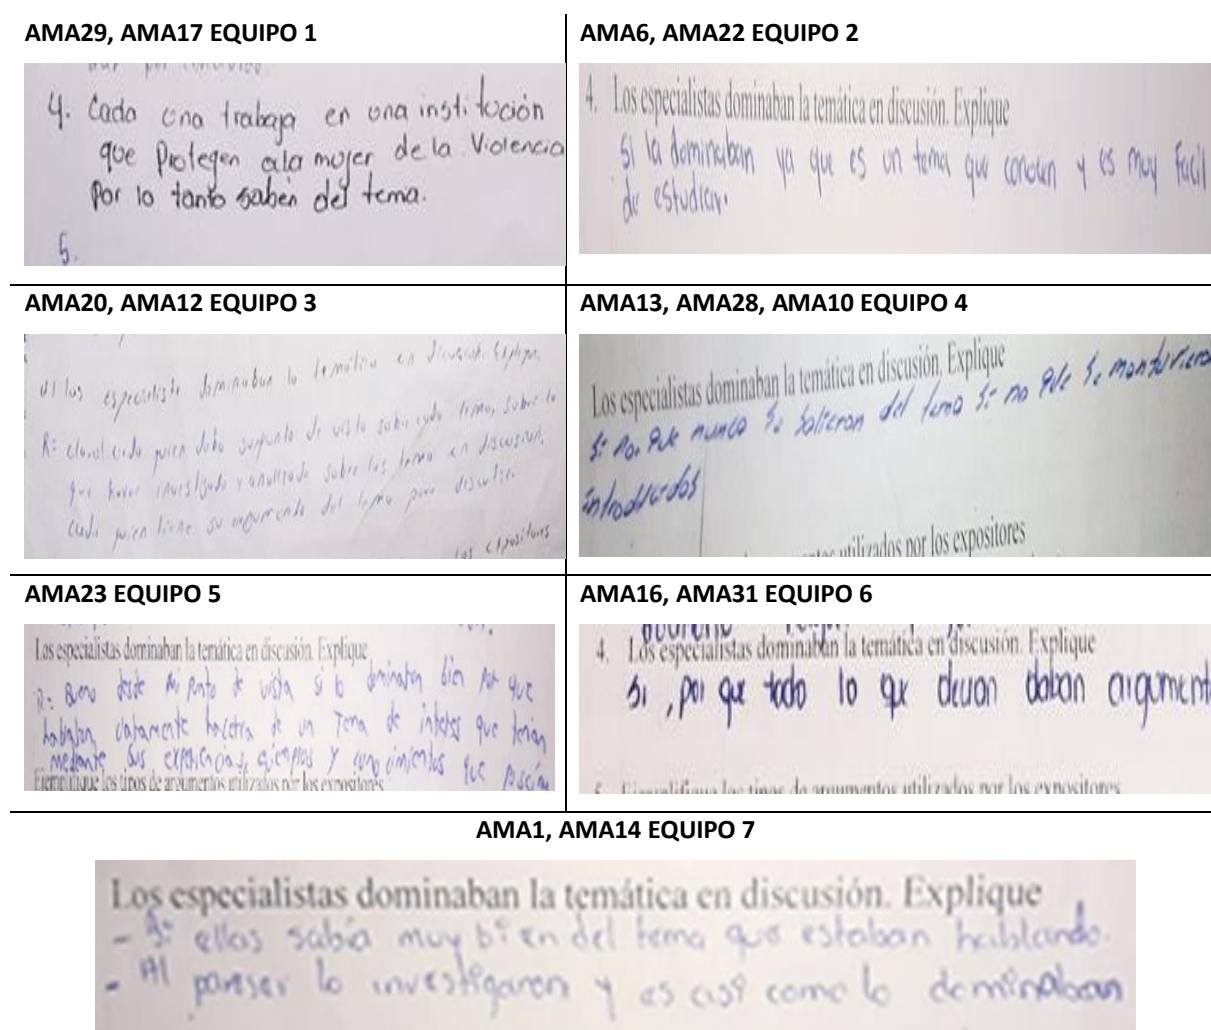 AMA29, AMA17 EQUIPO 1
4. Cada una trabaja en una institución
que Protegen ala mujer de la Violencia
Por lo tanto saben del tema.
5.
AMA6, AMA22 EQUIPO 2
4. Los especialistas dominaban la temática en discusión. Explique
Si la dominaban ya que es un tema que conocen y es muy facil
de estudiar.
AMA20, AMA12 EQUIPO 3
los especialista dominaban la temática en discusión. Explique.
R= claro! cada quien daba su punto de vista sobre cada tema, sobre lo
que haver investigado y analizado sobre los tema en discusión.
cada quien tiene su argumento del tema para discutir.
los expositores
AMA13, AMA28, AMA10 EQUIPO 4
Los especialistas dominaban la temática en discusión. Explique
Si Por que nunca Se salieron del tema Si no que Se mantuvieron
introducidos
utilizados por los expositores
AMA23 EQUIPO 5
Los especialistas dominaban la temática en discusión. Explique
R: Bueno desde mi punto de vista si lo dominaban bien por que
hablaban claramente hacerca de un Tema de interes que tenian
mediante sus experiencias, ejemplos y conocimientos que poseían
Ejemplifique los tipos de argumentos utilizados por los expositores
AMA16, AMA31 EQUIPO 6
4. Los especialistas dominaban la temática en discusión. Explique
Si, por que todo lo que decian daban argument
5. Ejemplifique los tipos de argumentos utilizados por los expositores
AMA1, AMA14 EQUIPO 7
Los especialistas dominaban la temática en discusión. Explique
- Si ellas sabía muy bien del tema que estaban hablando.
- Al pareser lo investigaron y es así como lo dominaban